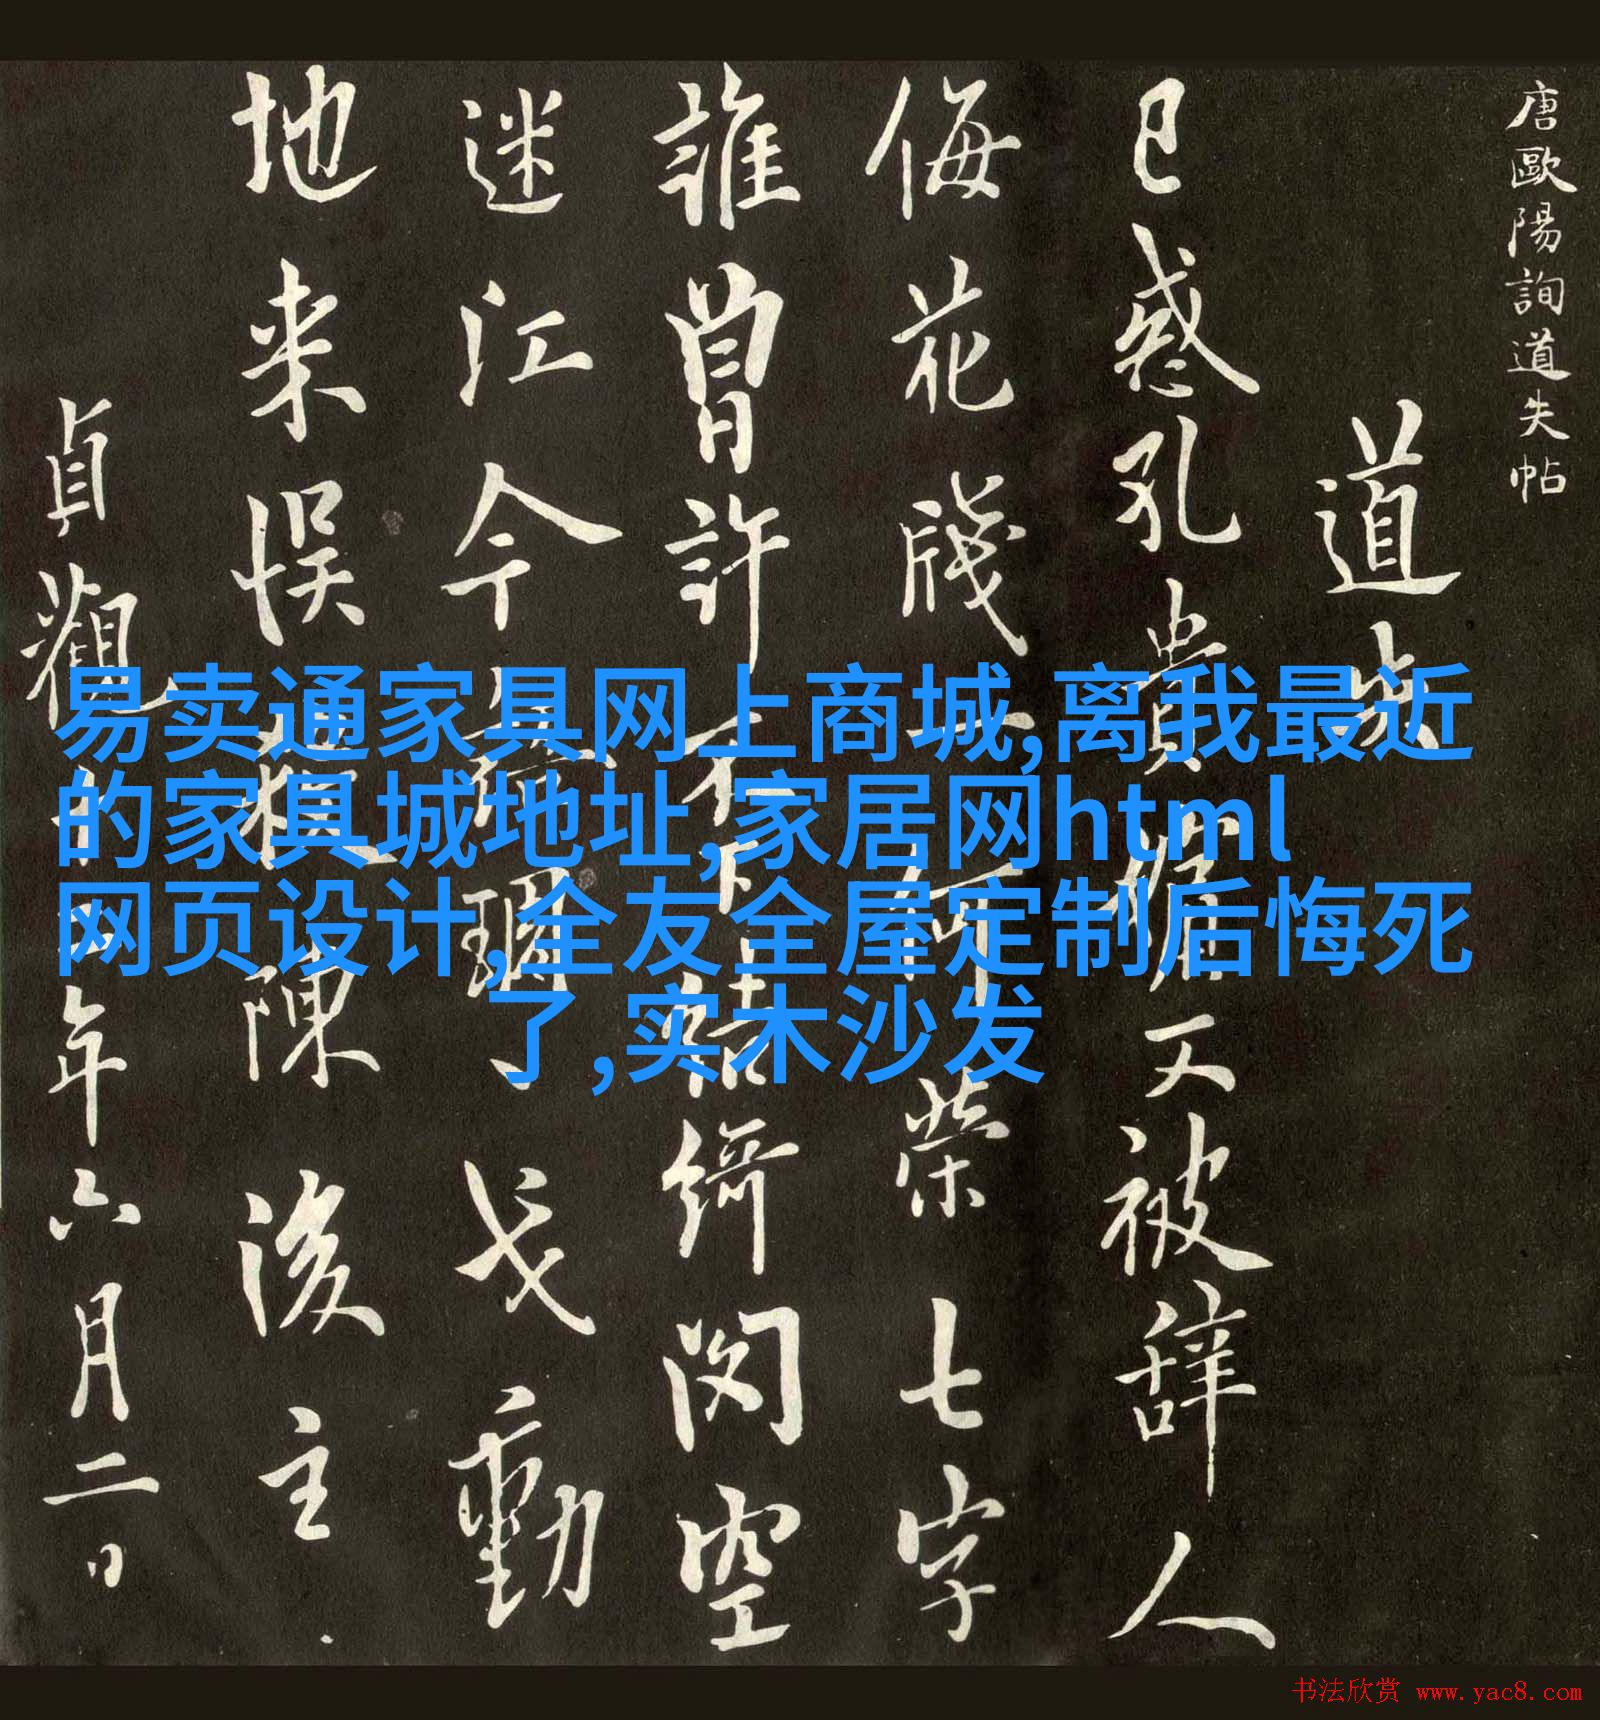 唐歐陽詢道失帖
道失
已惑孔貴嬪又被辭人
侮花牋一何榮七字
誰曾許結綺閣空
迷江令戈動
地来悞陳後主
貞觀年六月二日
易卖通家具网上商城,离我最近
的家具城地址,家居网html
网页设计,全友全屋定制后悔死
了,实木沙发
书法欣赏 www.yac8.com